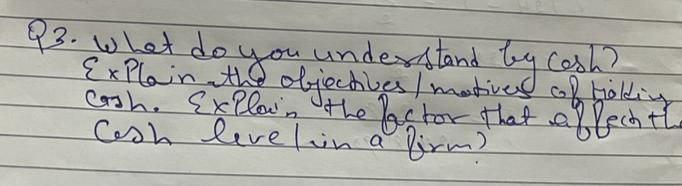 Q3. What do you understand by Cash?
Explain the objectives / motives of Holding
Cash. Explain the factor that affect th
Cash level in a firm?